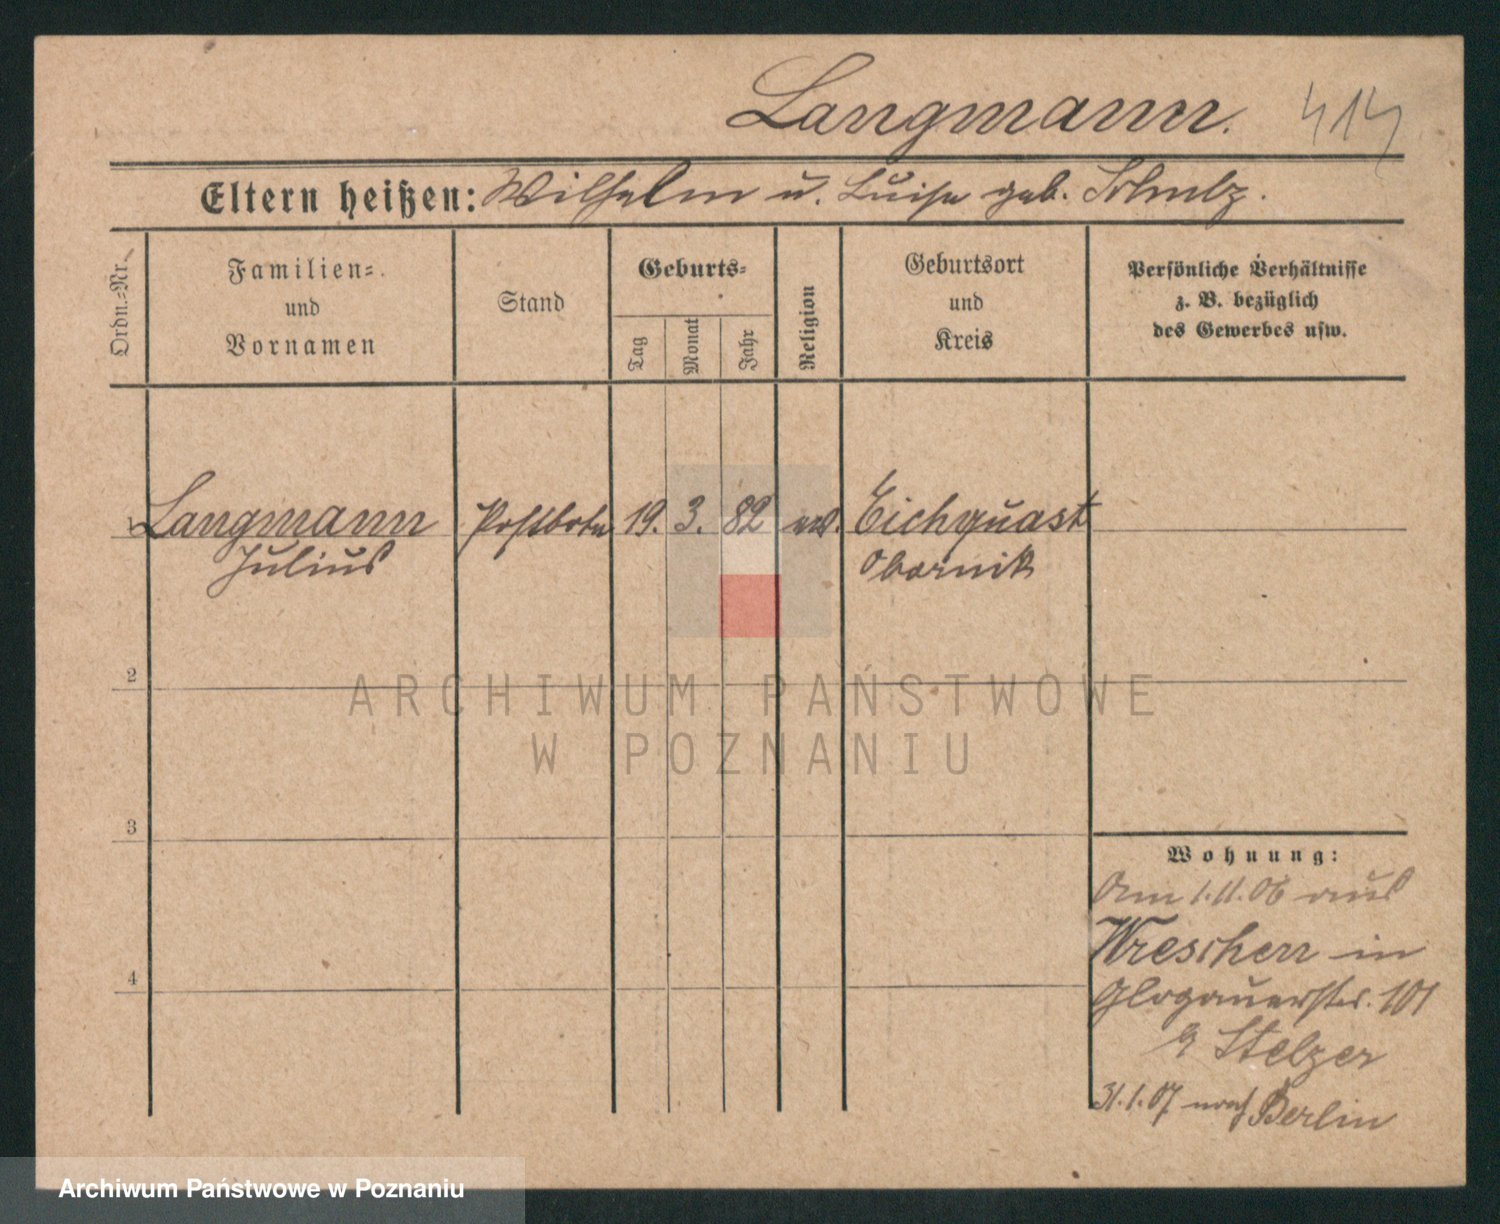 Langmann. 414
Eltern heißen: Wilhelm u. Luise geb. Schulz.
Ordn.=Nr.
Familien=
und
Vornamen
Stand
Geburts=
Tag
Monat
Jahr
Religion
Geburtsort
und
Kreis
Persönliche Verhältnisse
z. B. bezüglich
des Gewerbes usw.
1 Langmann Postbote 19. 3. 82 ev. Eichquast
Julius Obornik
2
3
4
Wohnung:
Am 1.11.06 aus
Wreschen in
Glogauerstr. 101
b/ Stelzer
31.1.07 nach Berlin
ARCHIWUM PAŃSTWOWE
W POZNANIU
Archiwum Państwowe w Poznaniu